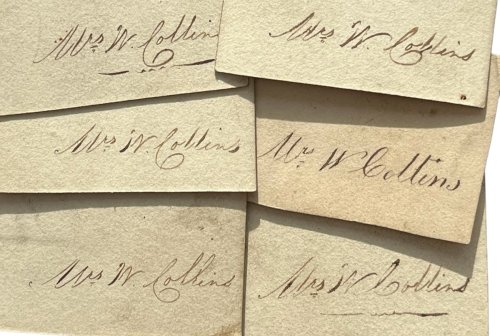 Mrs W. Collins
Mrs W. Collins
Mrs W Collins
Mr W Collins
Mrs W Collins
Mrs W Collins